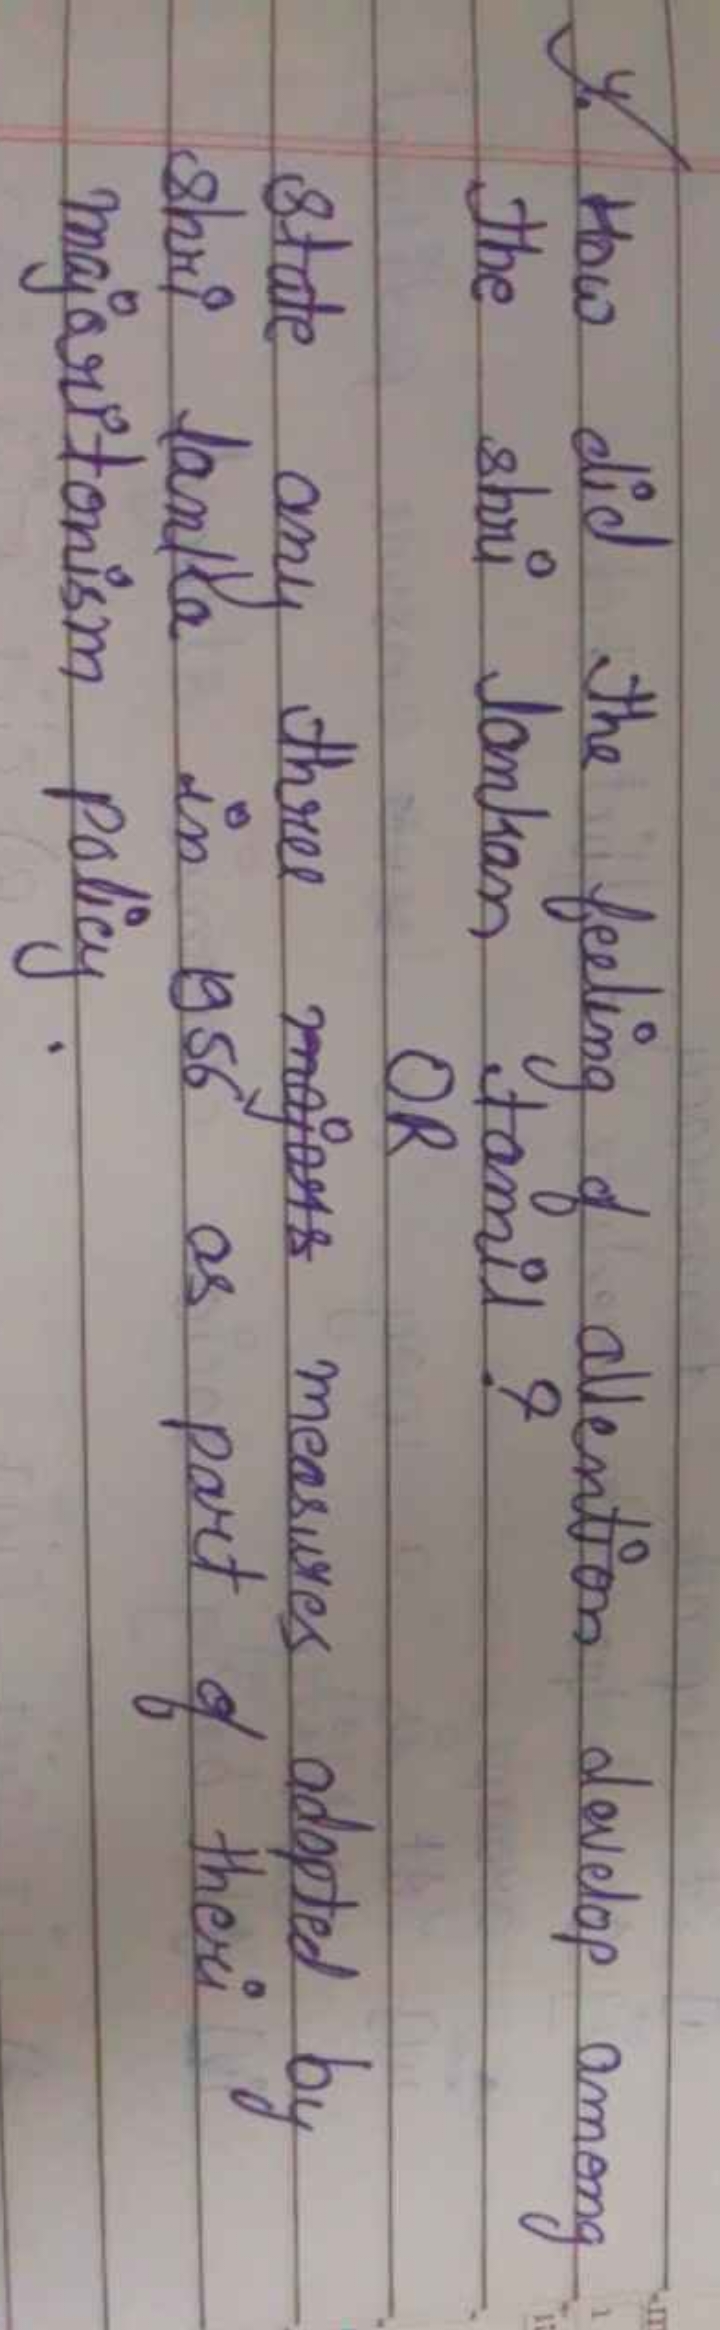 4. How did the feeling of allention develop among
the shri lankan tamil ?
OR
State any three majors measures adopted by
shri lanka in 1956 as part of theri
majoritonism policy.